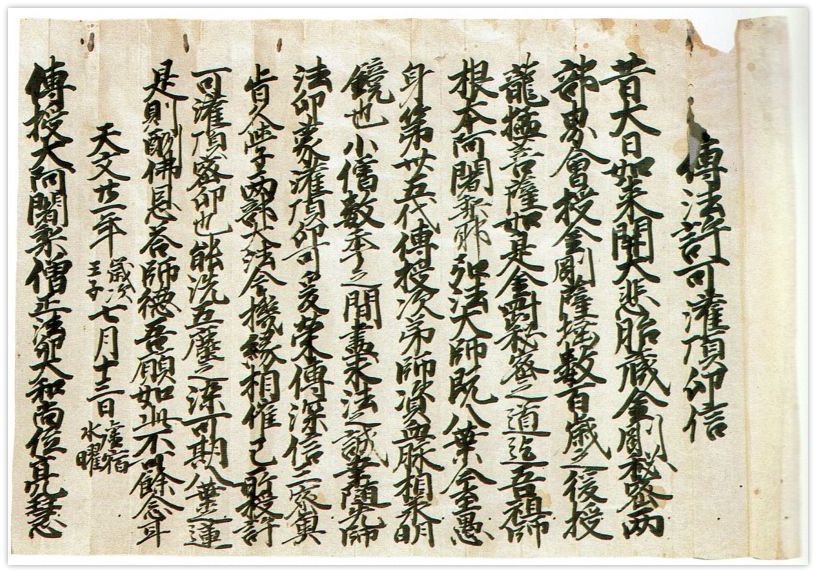 傳法許可灌頂印信
昔大日如来開大悲胎蔵金剛秘密両
部界會授金剛薩埵數百歳之後授
龍猛菩薩如是金剛秘密之道迄吾祖師
根本阿闍梨弘法大師既八葉今至愚
身第卅五代傳授次第師資血脉相承明
鏡也小僧數年之間盡求法之誠幸随先師
法印蒙灌頂印可爰栄傳深信三密奥
旨久学両部大法今機縁相催已所授許
可灌頂密印也能洗五塵之染可期八葉之蓮
是則酬佛恩答師徳吾願如此不可餘念耳
天文廿一年歳次壬子七月十三日 宿水曜
傳授大阿闍梨僧正法印大和尚位